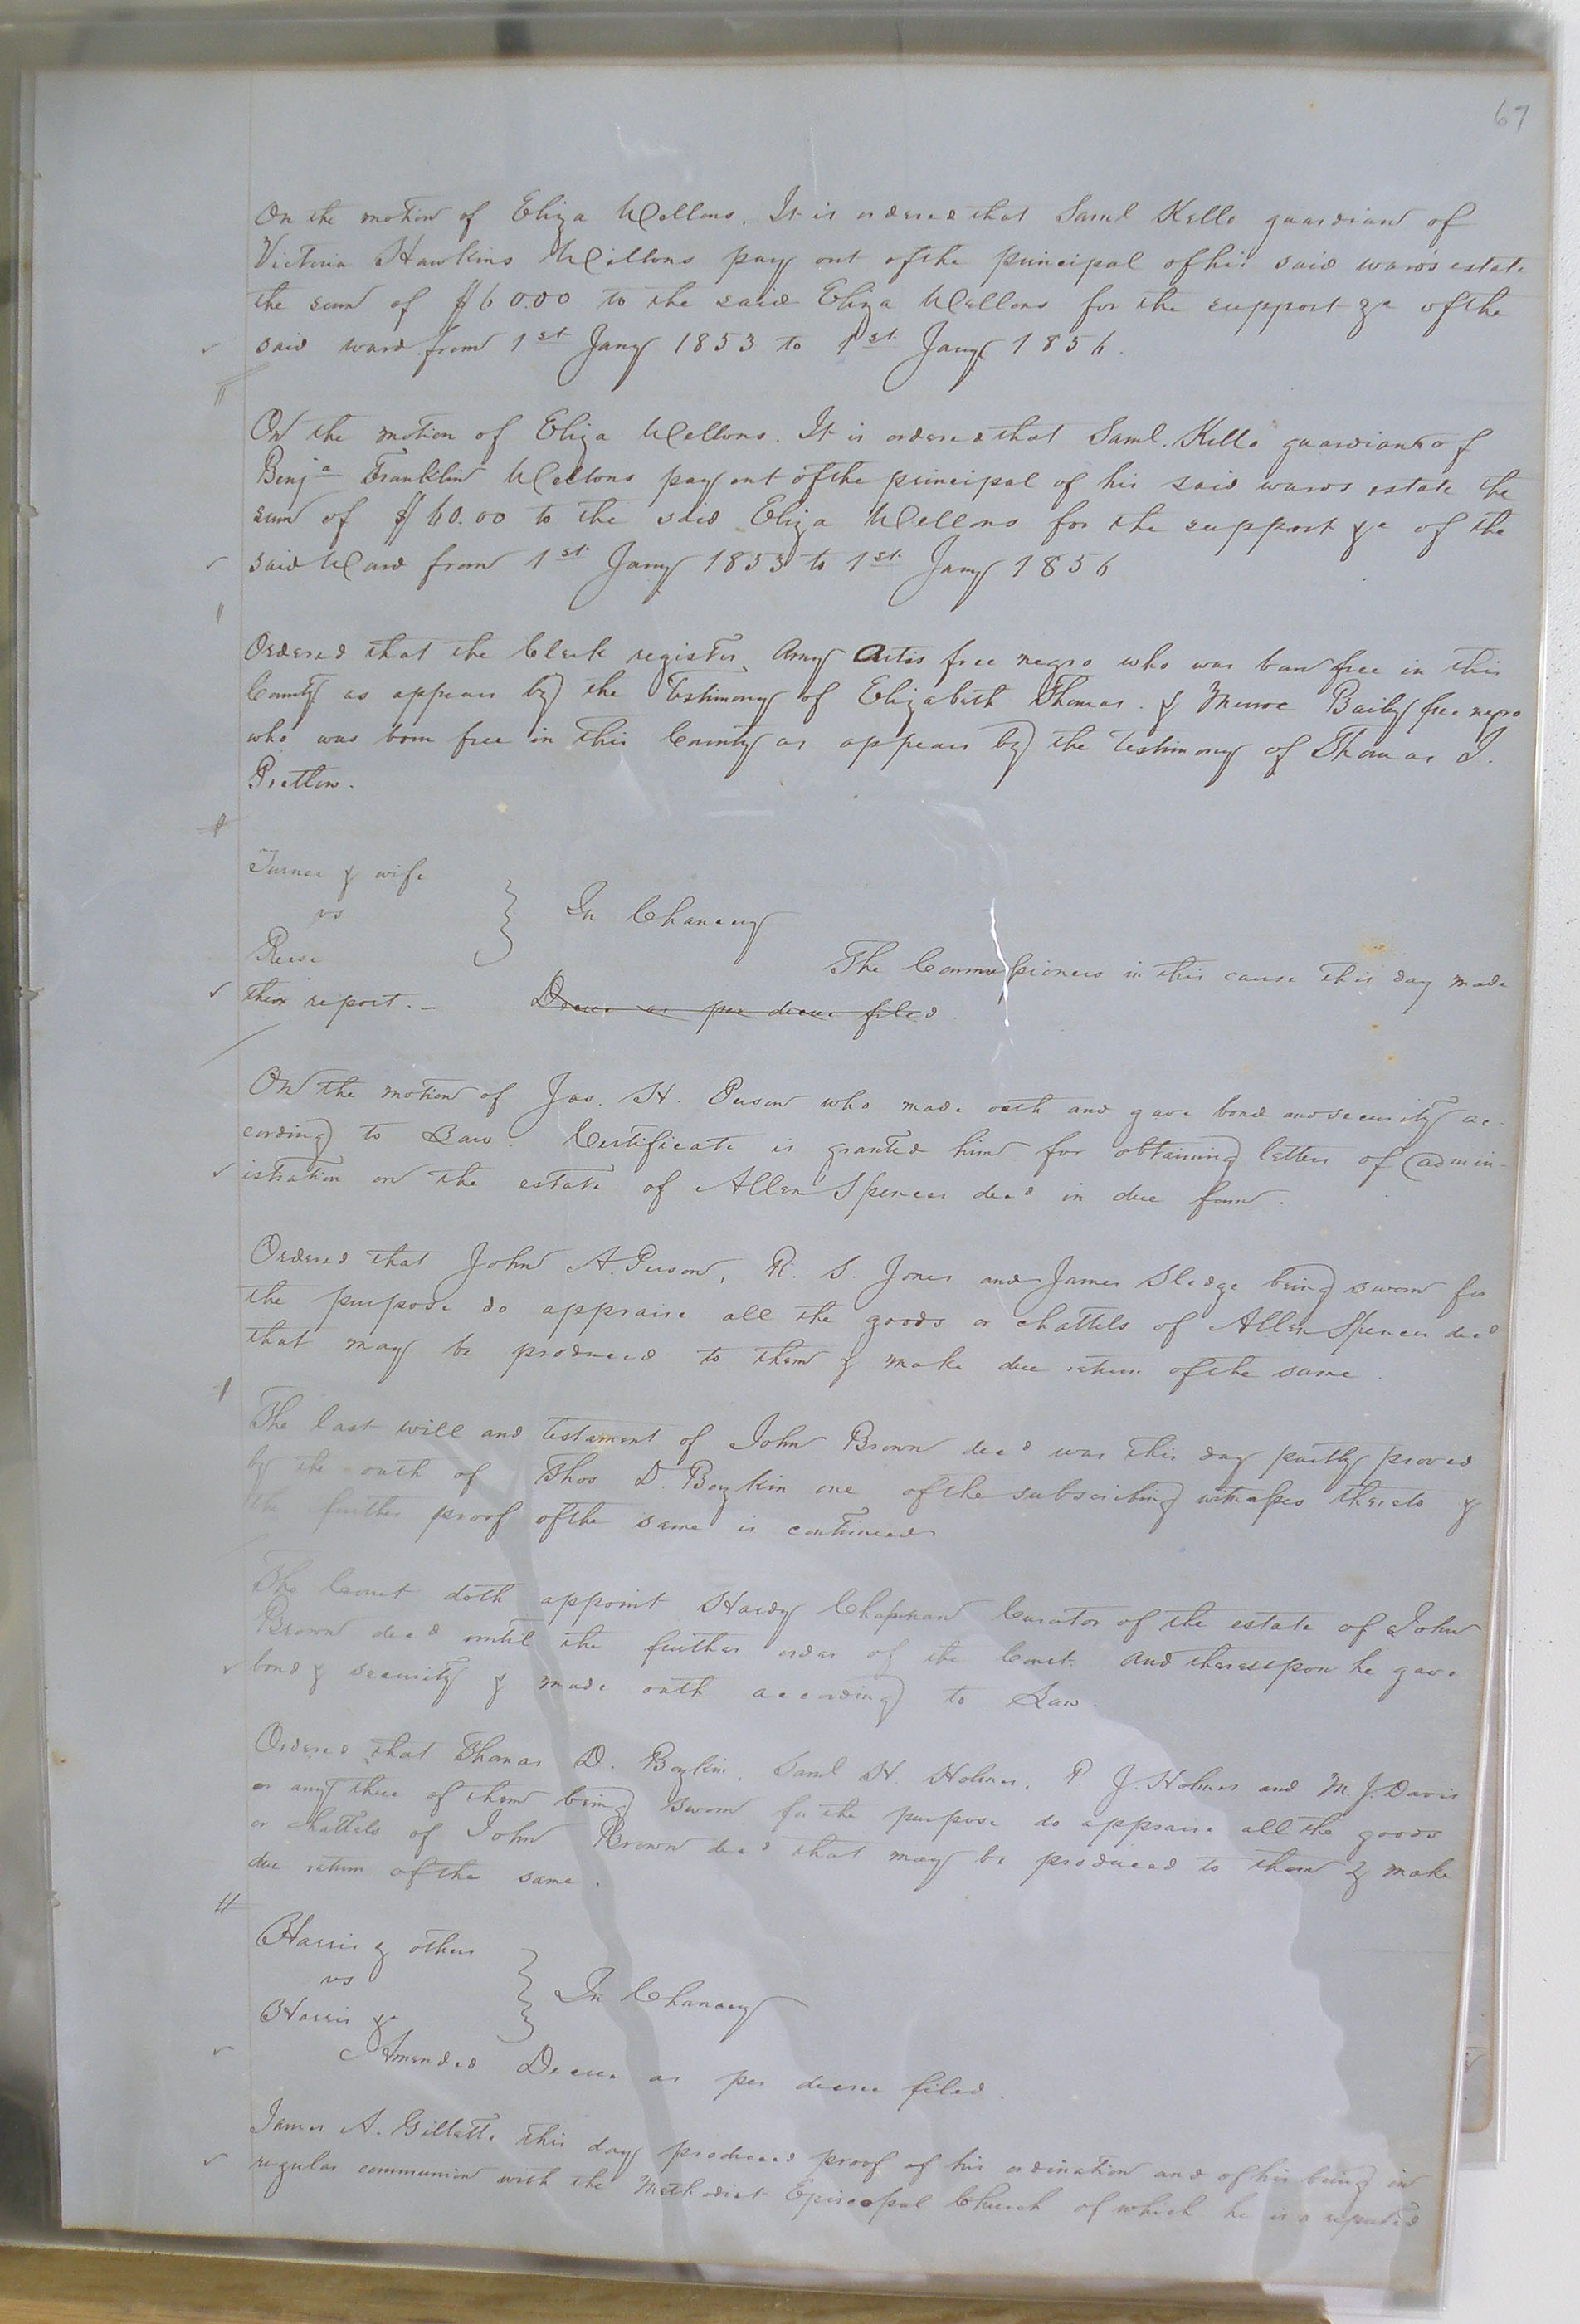 67
On the motion of Eliza Wellons. It is ordered that Saml Kello guardian of
Victoria Hawkins Wellons pay out of the principal of his said wards estate
the sum of $60.00 to the said Eliza Wellons for the support &c of the
said ward from 1st Jany 1853 to 1st Jany 1856.
On the motion of Eliza Wellons. It is ordered that Saml. Kello guardian of
Benja Franklin Wellons pay out of the principal of his said wards estate the
sum of $60.00 to the said Eliza Wellons for the support &c of the
said Ward from 1st Jany 1853 to 1st Jany 1856
Ordered that the Clerk register Amy Artis free negro who was born free in this
County as appears by the Testimony of Elizabeth Thomas. & Monroe Baily free negro
who was born free in this County as appears by the Testimony of Thomas J.
Pretlow.
Turner & wife
vs
In Chancery
Reese
The Commissioners in this cause this day made
their report. — Decree as per decree filed.
On the motion of Jas. H. Person who made oath and gave bond and security ac-
cording to Law. Certificate is granted him for obtaining letters of admin-
istration on the estate of Allen Spencer decd in due form.
Ordered that John A. Person, R. S. Jones and James Sledge being sworn for
the purpose do appraise all the goods or chattels of Allen Spencer decd
that may be produced to them & make due return of the same.
The last will and testament of John Brown decd was this day partly proved
by the oath of Thos D. Boykin one of the subscribing witnesses thereto &
the further proof of the same is continued
The Court doth appoint Hardy Chapman Curator of the estate of John
Brown decd until the further order of the Court. And thereupon he gave
bond & security & made oath according to Law.
Ordered that Thomas D. Boykin, Saml H. Holmes, P. J. Holmes and M. J. Davis
or any three of them being sworn for the purpose do appraise all the goods
or chattels of John Brown decd that may be produced to them & make
due return of the same.
Harris & others
vs
In Chancery
Harris &c
Amended Decree as per decree filed.
James A. Gillette this day produced proof of his ordination and of his being in
regular communion with the Methodist Episcopal Church of which he is a reputed